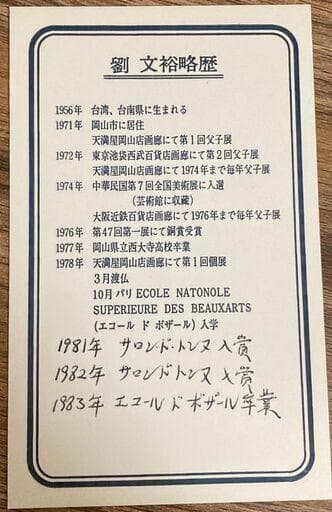 劉 文裕略歴
1956年 台湾、台南県に生まれる
1971年 岡山市に居住
天満屋岡山店画廊にて第1回父子展
1972年 東京池袋西武百貨店画廊にて第2回父子展
天満屋岡山店画廊にて1974年まで毎年父子展
1974年 中華民国第7回全国美術展に入選
(芸術館に収蔵)
大阪近鉄百貨店画廊にて1976年まで毎年父子展
1976年 第47回第一展にて銅賞受賞
1977年 岡山県立西大寺高校卒業
1978年 天満屋岡山店画廊にて第1回個展
3月渡仏
10月パリ ECOLE NATONOLE
SUPERIEURE DES BEAUXARTS
(エコール ド ボザール) 入学
1981年 サロンド・トンヌ入賞
1982年 サロンド・トンヌ入賞
1983年 エコール ド ボザール卒業